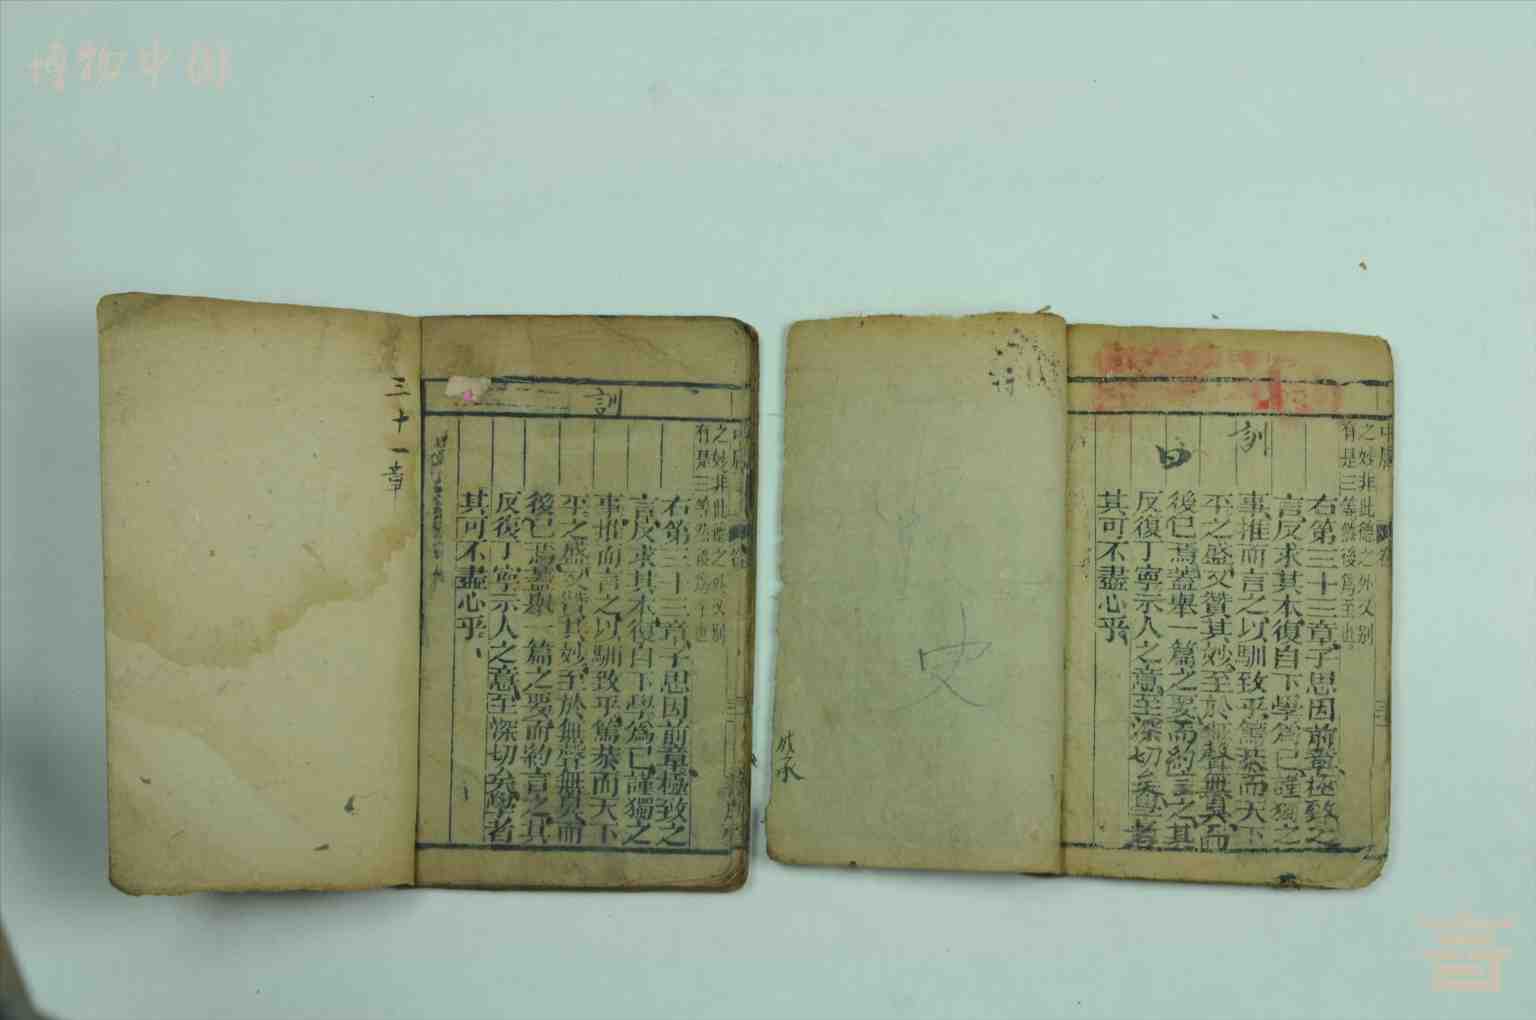 博物中国
三十一章
訓
之妙非此德之外又別
有是三等然後為至也
右第三十三章子思因前章極致之
言反求其本復自下學為己謹獨之
事推而言之以馴致乎篤恭而天下
平之盛又贊其妙至於無聲無臭而
後已焉蓋舉一篇之要而約言之其
反復丁寧示人之意至深切矣學者
其可不盡心乎
史
訓
曰
中庸
之妙非此德之外又別
有是三等然後為至也
右第三十三章子思因前章極致之
言反求其本復自下學為己謹獨之
事推而言之以馴致乎篤恭而天下
平之盛又贊其妙至於無聲無臭而
後已焉蓋舉一篇之要而約言之其
反復丁寧示人之意至深切矣學者
其可不盡心乎